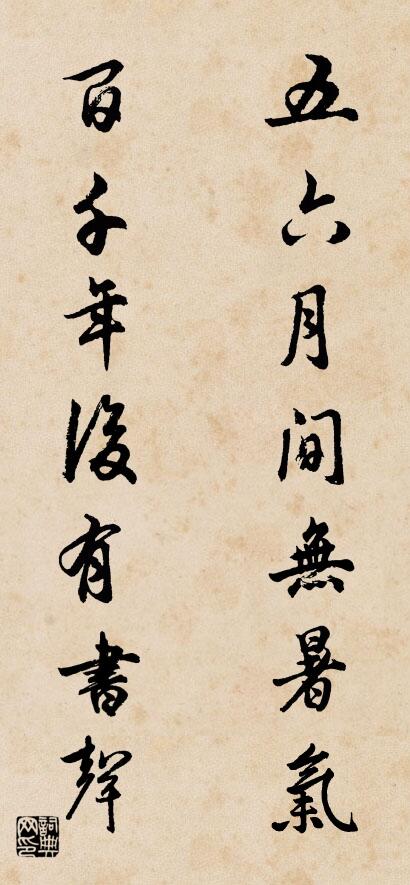 五六月間無暑氣
百千年後有書聲
詞典网印